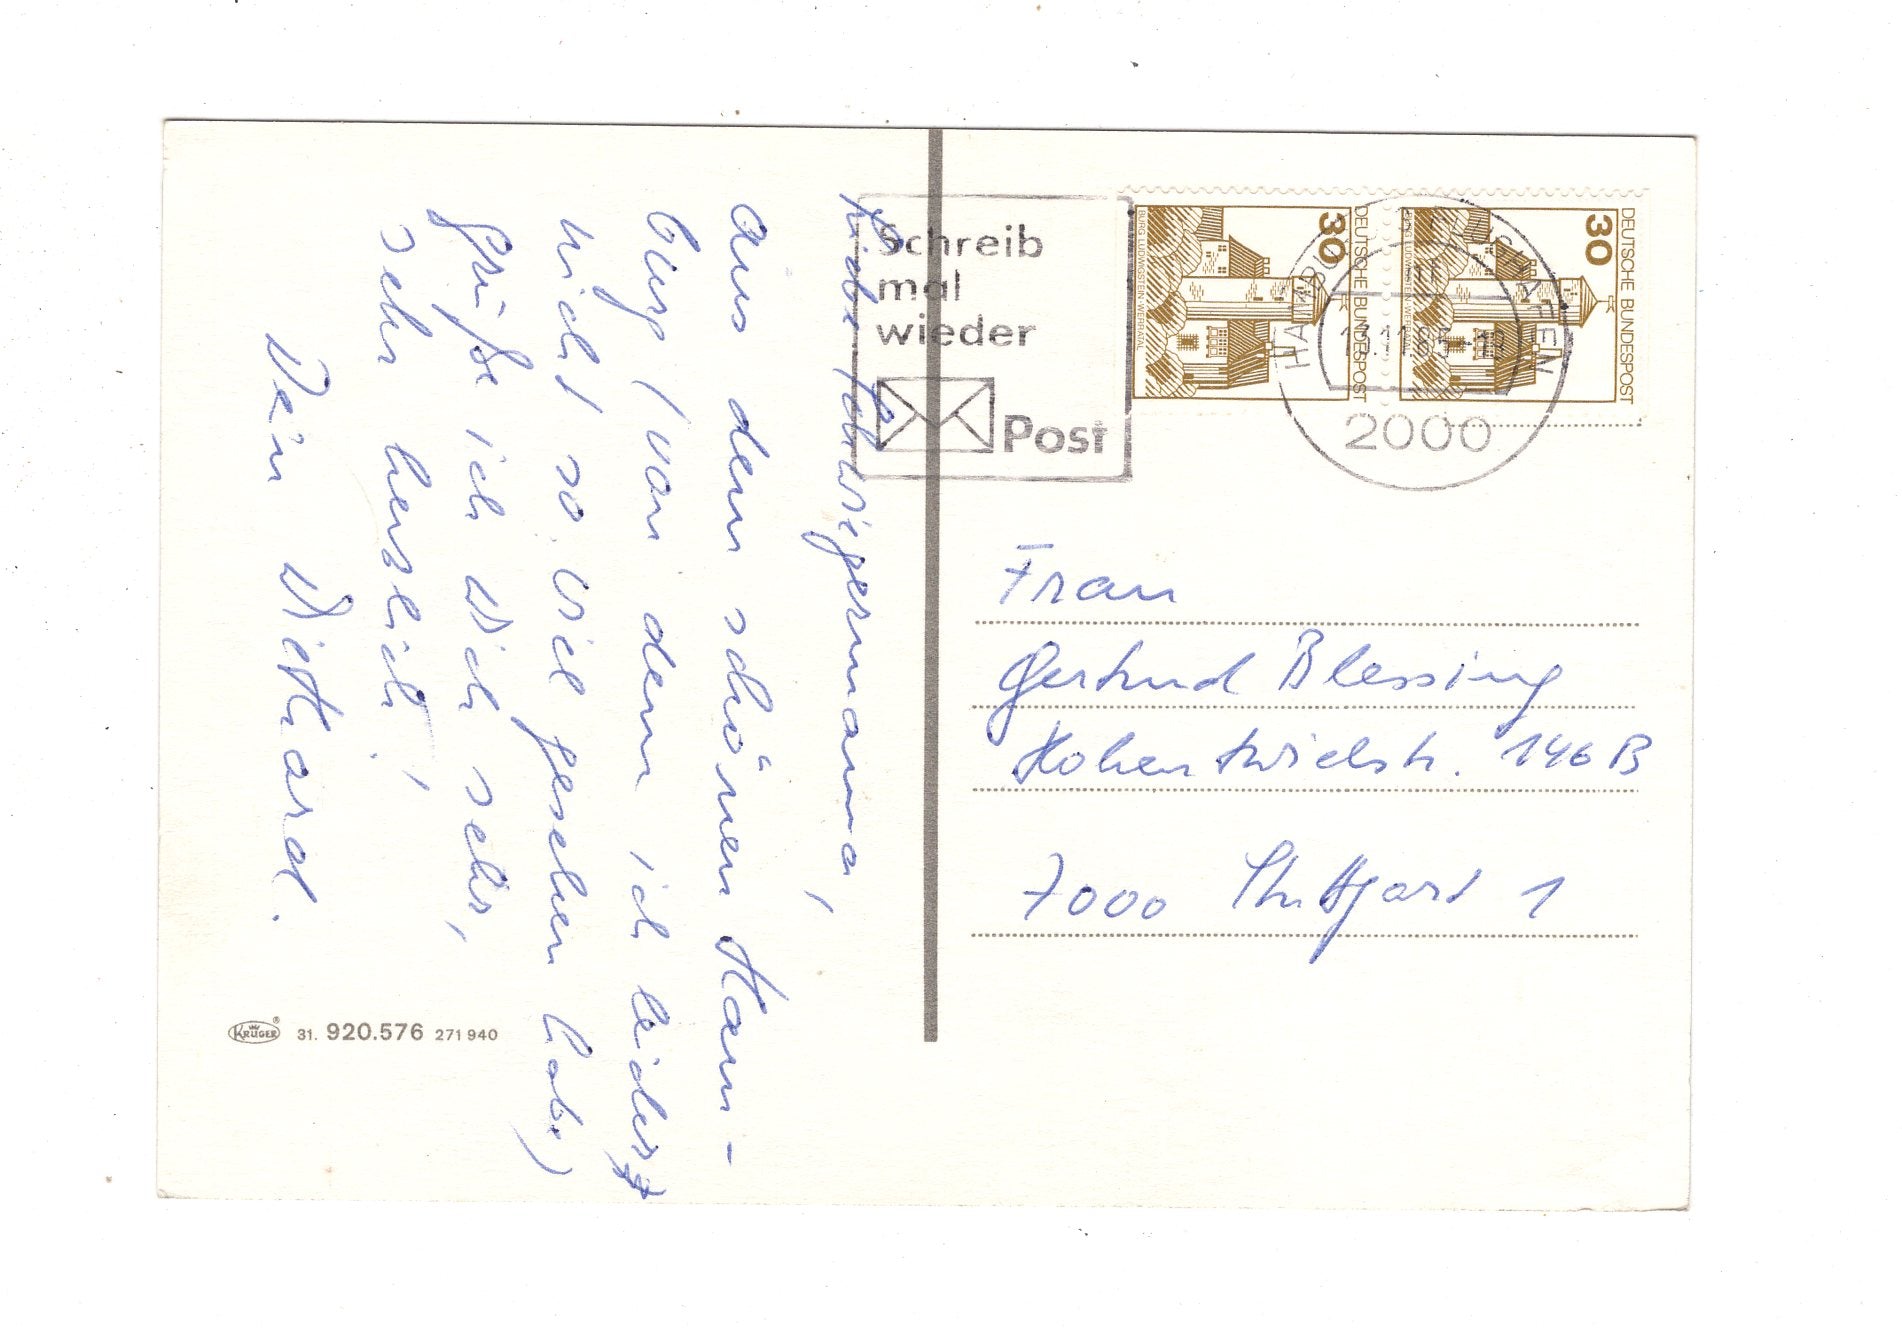 Liebe Schwiegermama,
aus dem schönen Ham-
burg (von dem ich leider
nicht so viel gesehen habe)
grüße ich Dich sehr,
sehr herzlich!
Dein Diethard.
KRÜGER® 31. 920.576 271 940
Schreib
mal
wieder
Post
30
DEUTSCHE BUNDESPOST
BURG LUDWIGSTEIN · WERRATAL
30
DEUTSCHE BUNDESPOST
BURG LUDWIGSTEIN · WERRATAL
HAMBURG-FLUGHAFEN
13.11.85-19
2000
Frau
Gertrud Blessing
Hohentwielstr. 146 B
7000 Stuttgart 1